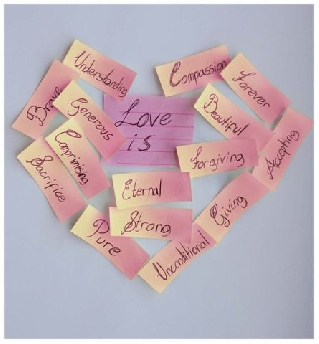 Love
is
Understanding
Brave
Generous
Comprimising
Sacrifice
Pure
Eternal
Strong
Unconditional
Giving
Forgiving
Beautiful
Compassion
Forever
Accepting